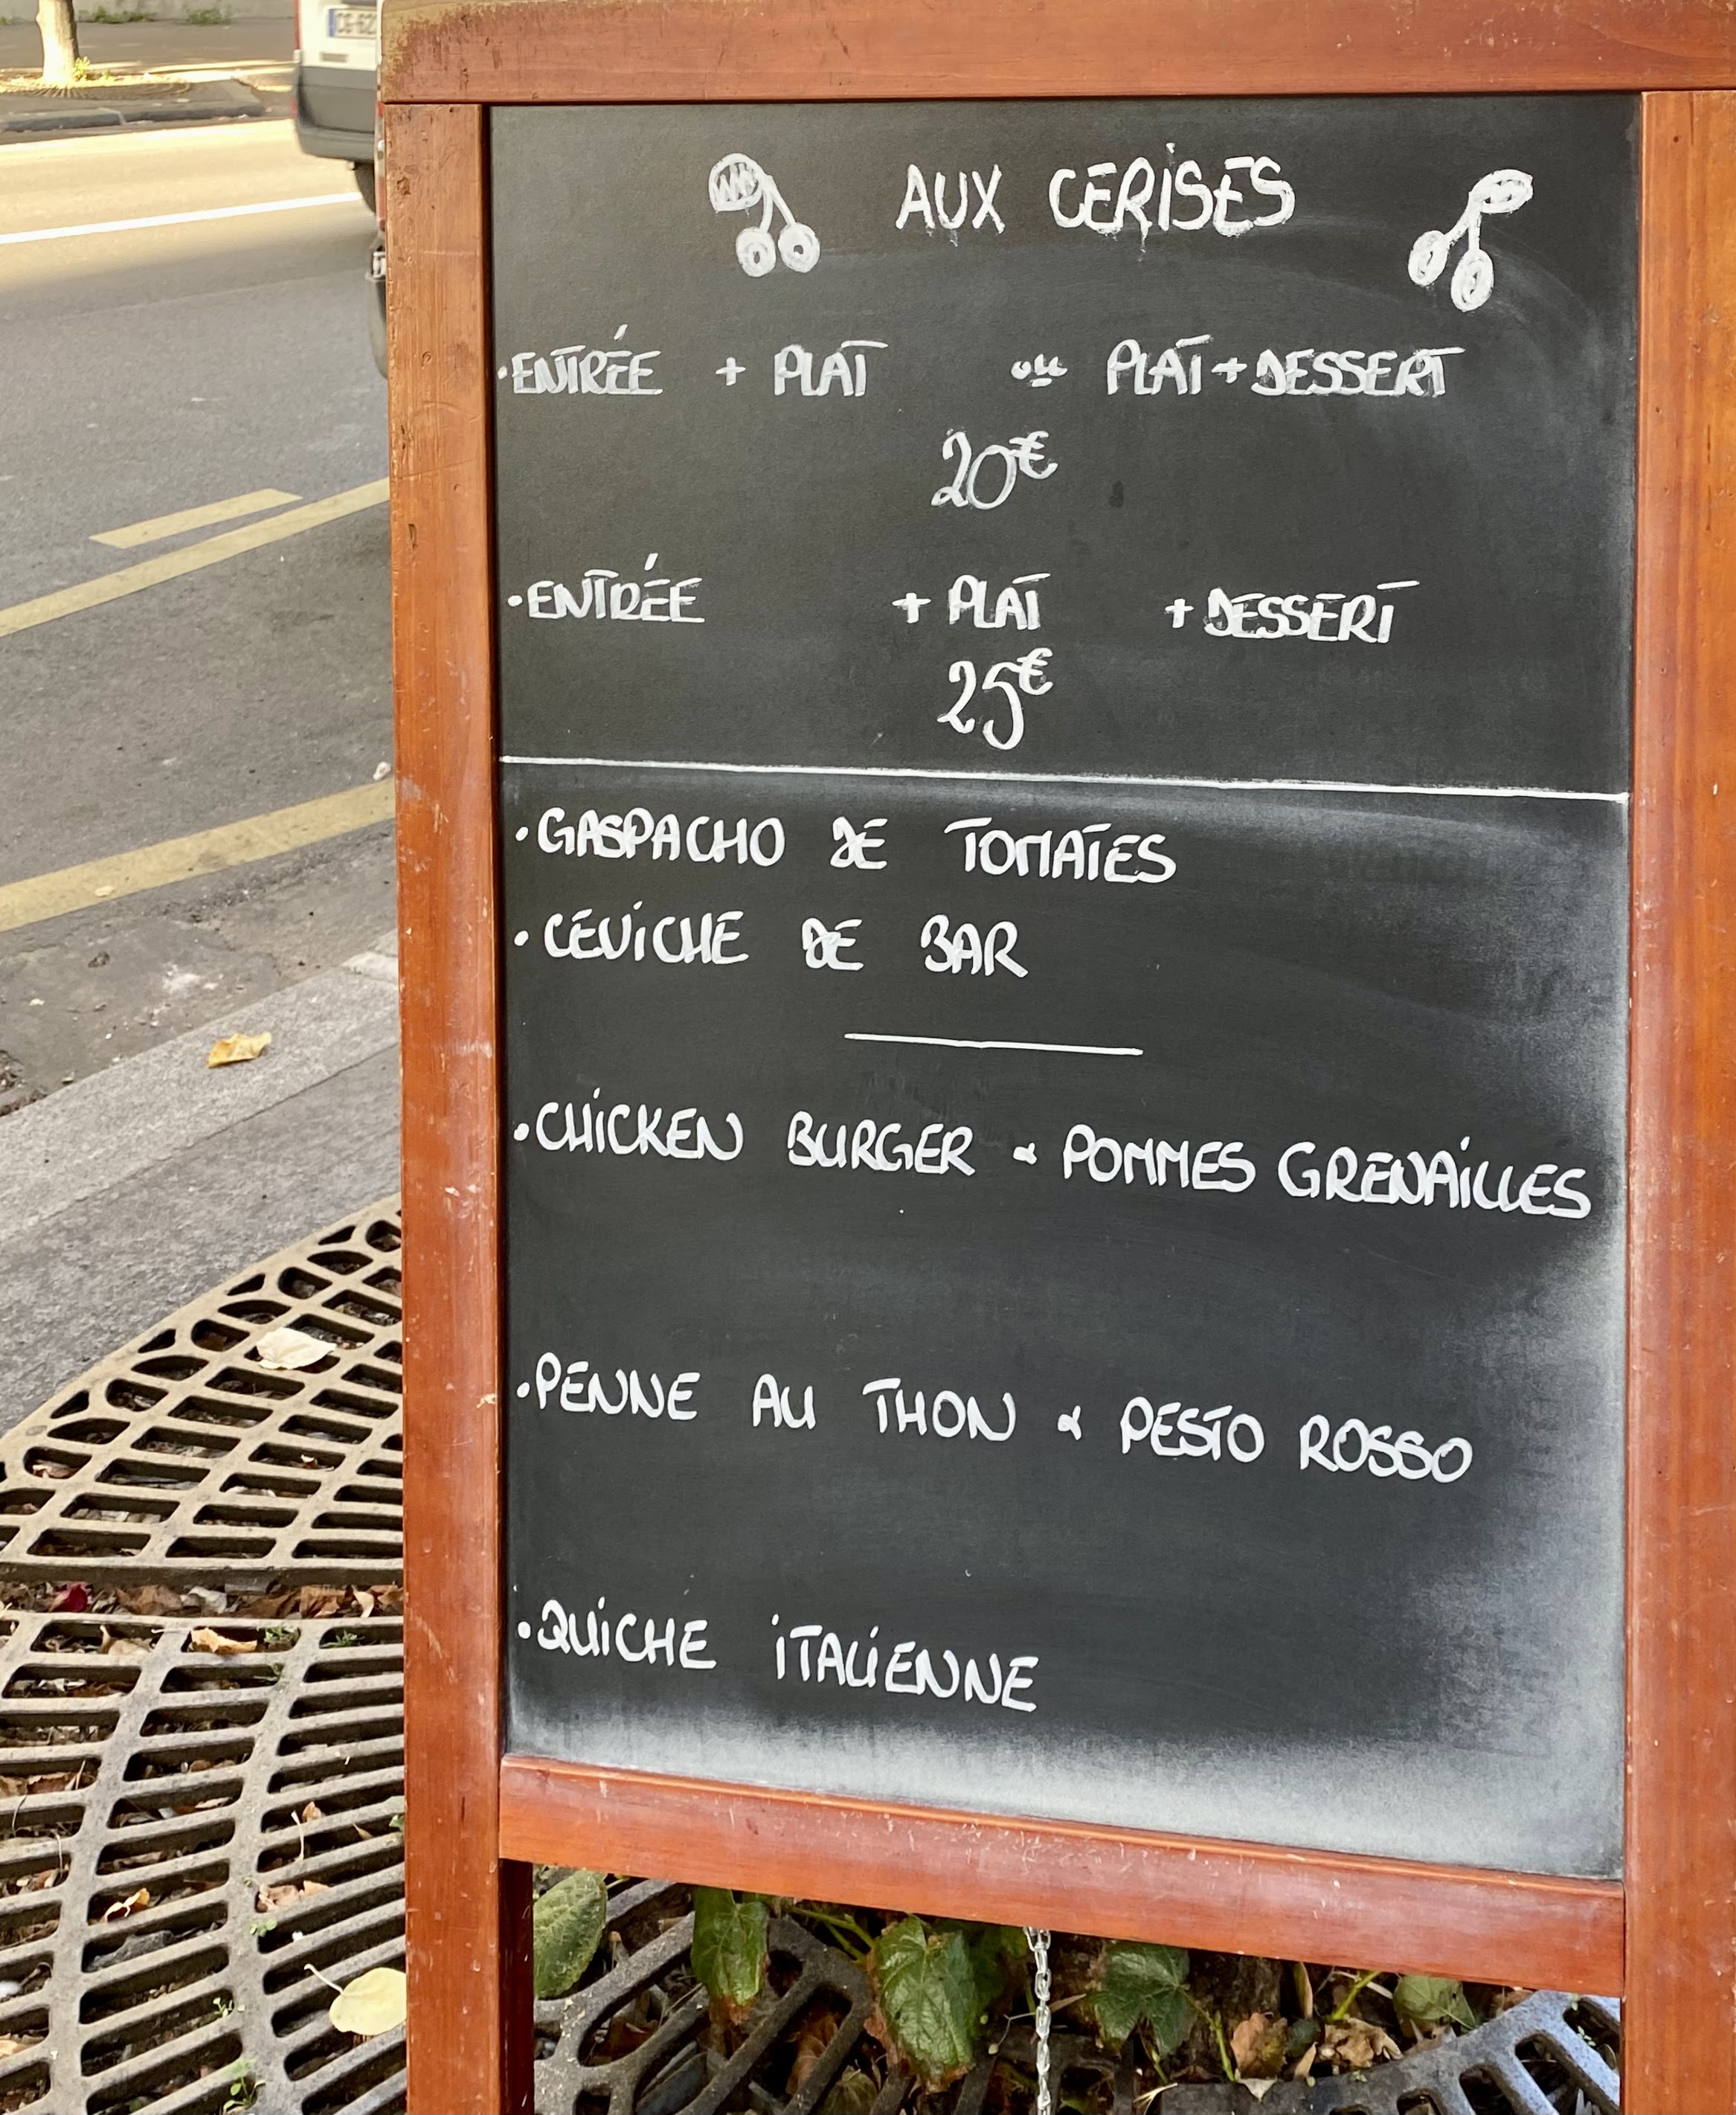 CG-62
AUX CERISES
·ENTRÉE + PLAT ou PLAT + DESSERT
20€
·ENTRÉE + PLAT + DESSERT
25€
·GASPACHO DE TOMATES
·CEVICHE DE BAR
·CHICKEN BURGER & POMMES GRENAILLES
·PENNE AU THON & PESTO ROSSO
·QUICHE ITALIENNE